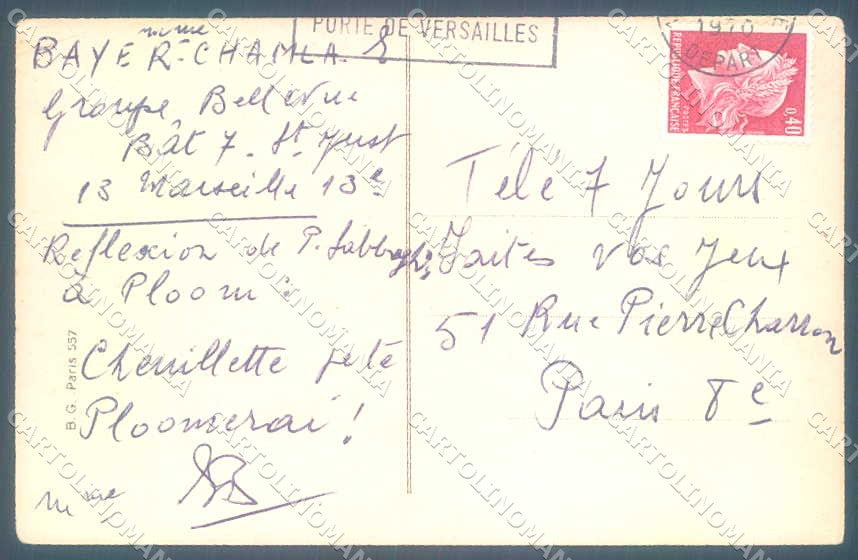 PORTE DE VERSAILLES
1970
DEPART
REPUBLIQUE FRANCAISE
0,40
POSTES
mme
BAYER-CHAMLA E
Groupe Bellevue
Bât 7. St. Just
13 Marseille 13e
Reflexion de P. Sabbagh
à Ploom :
Chenillette je te
Ploomerai !
B.G. Paris 557
Télé 7 Jours
Faites vos Jeux
51 Rue Pierre Charron
Paris 8e
CARTOLINOMANIA